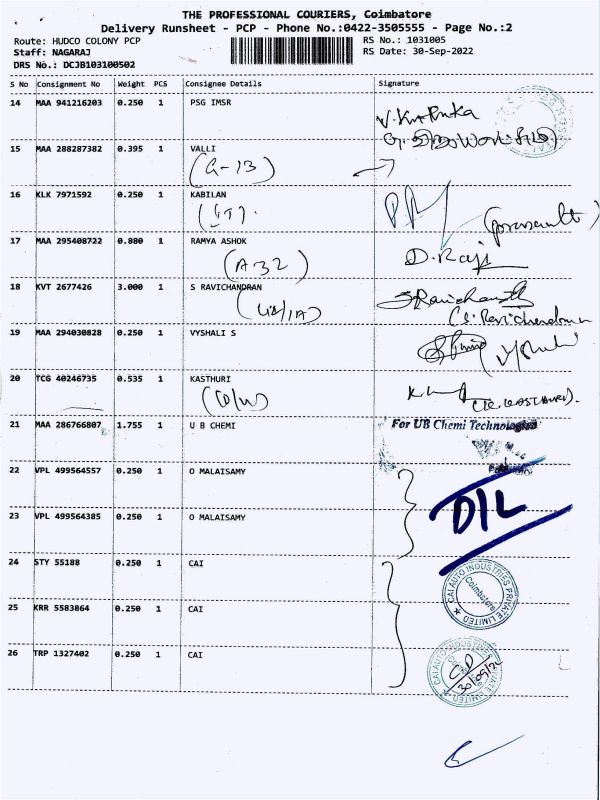 THE PROFESSIONAL COURIERS, Coimbatore
Delivery Runsheet - PCP - Phone No.:0422-3505555 - Page No.:2
Route: HUDCO COLONY PCP
RS No.: 1031005
Staff: NAGARAJ
RS Date: 30-Sep-2022
DRS No.: DCJB103100502
S No Consignment No Weight PCS Consignee Details Signature
14 MAA 941216203 0.250 1 PSG IMSR
15 MAA 288287382 0.395 1 VALLI
(G-13)
16 KLK 7971592 0.250 1 KABILAN
17 MAA 295408722 0.880 1 RAMYA ASHOK
(A32)
D.Raji
18 KVT 2677426 3.000 1 S RAVICHANDRAN
19 MAA 294030828 0.250 1 VYSHALI S
20 TCG 40246735 0.535 1 KASTHURI
21 MAA 286766807 1.755 1 U B CHEMI
For UB Chemi Technologies
22 VPL 499564557 0.250 1 O MALAISAMY
D/L
23 VPL 499564385 0.250 1 O MALAISAMY
24 STY 55188 0.250 1 CAI
CAI AUTO INDUSTRIES PRIVATE LIMITED
Coimbatore
25 KRR 5583864 0.250 1 CAI
26 TRP 1327402 0.250 1 CAI
CAI AUTO INDUSTRIES PRIVATE LIMITED
30/09/22